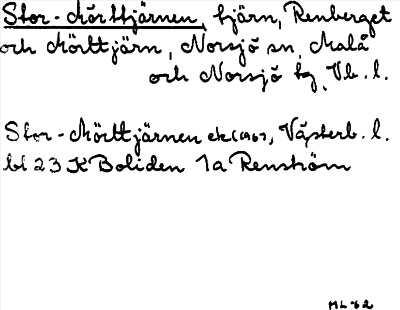 Stor-Mörttjärnen, tjärn, Renberget
och Mörttjärn, Norsjö sn, Malå
och Norsjö tg, Vb. l.
Stor-Mörttjärnen ek(1961), Västerb. l.
bl 23 K Boliden 1a Renström
ML 62